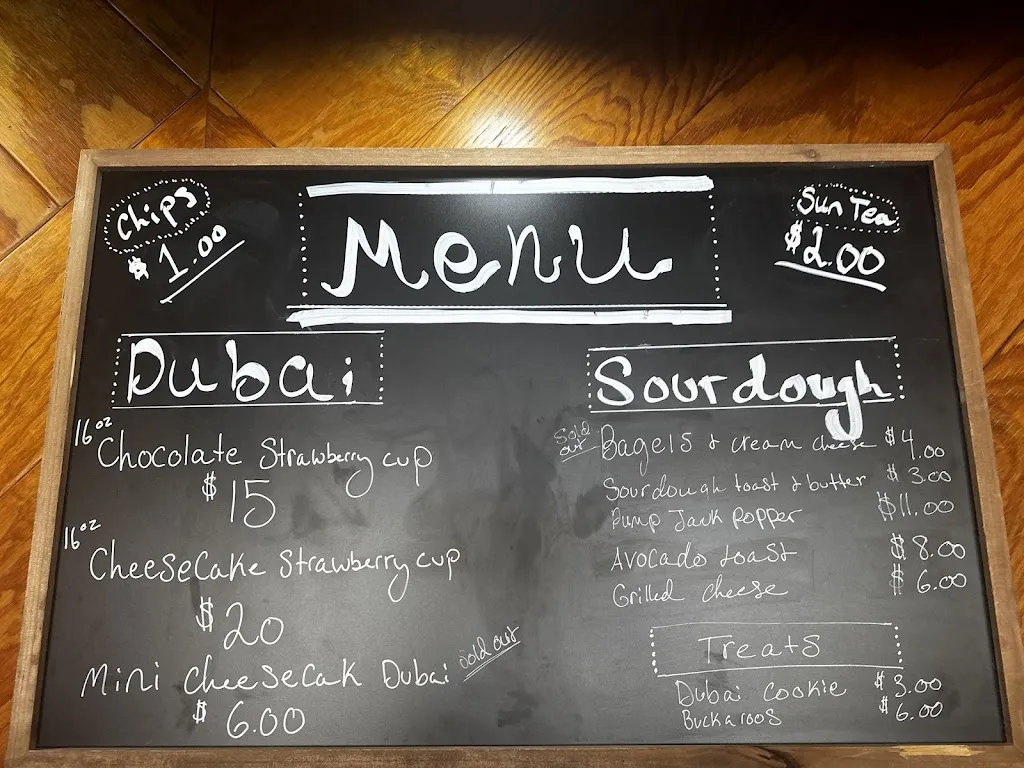 Chips
$1.00
Menu
Sun Tea
$2.00
Dubai
16oz
Chocolate Strawberry cup
$15
16oz
Cheesecake Strawberry cup
$20
Mini cheesecak Dubai sold out
$6.00
Sourdough
Sold out Bagels & cream cheese $4.00
Sourdough toast & butter $3.00
Pump Jack Popper $11.00
Avocado toast $8.00
Grilled cheese $6.00
Treats
Dubai cookie $3.00
Buckaroos $6.00